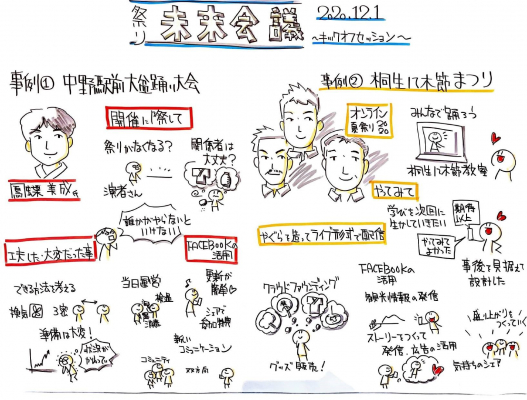 祭り 未来会議
2020.12.1
〜キックオフセッション〜
事例① 中野駅前大盆踊り大会
開催に際して
祭りがなくなる?
演者さん
関係者は
大丈夫?
誰かがやらないと
いけない!
工夫した・大変だった事
FACEBOOKの
活用
できる方法で考える
換気
3密
準備は大変!
状況が
かわって。
当日運営
検温
消毒
更新が
シェアで
新しい
コミュニケーション
コミュニティ
双方向
事例② 桐生八木節まつり
オンライン
夏祭り2020
みんなで踊ろう
桐生八木節教室
やってみて
学びを次回に
生かしていきたい
期待
以上
やってみて
よかった
やぐらを造ってライブ形式で配信
事後を見据えて
設計した
クラウドファンディング
グッズ販売!
FACEBOOKの
活用
観光情報の発信
ストーリーをつくって
発信、広告の活用
盛り上がりを
つくっていく
気持ちのシェア